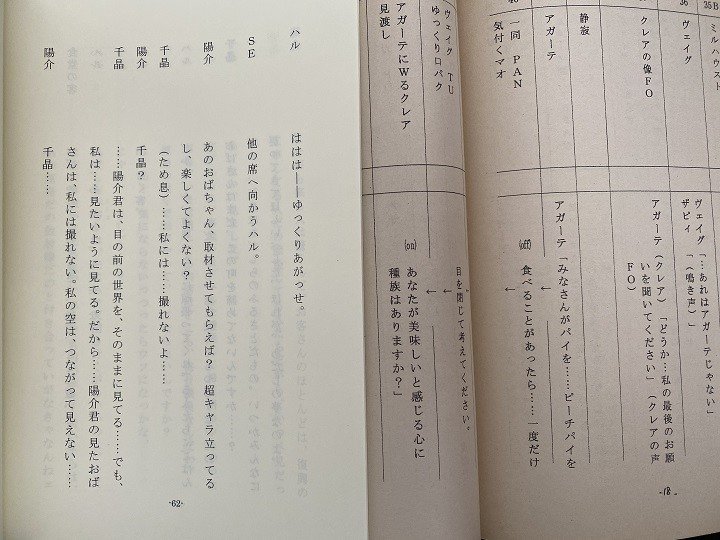 25B
ミルハウスト
ヴェイグ「…あれはアガーテじゃない」
ザピィ「（鳴き声）」
36
ヴェイグ
クレアの像FO
アガーテ（クレア）「どうか…私の最後のお願
いを聞いてください」（クレアの声
FO）
静寂
アガーテ
アガーテ「みなさんがパイを……ピーチパイを
一同 PAN
(off) 食べることがあったら……一度だけ
気付くマオ
-18-
ヴェイグ TU
目を閉じて考えてください。
ゆっくり口パク
(on) あなたが美味しいと感じる心に
アガーテにWるクレア
種族はありますか？」
見渡し
ハル ははは――ゆっくりあがっせ。
SE 他の席へ向かうハル。
陽介 あのおばちゃん、取材させてもらえば？ 超キャラ立ってる
し、楽しくてよくない？
千晶 （ため息）……私には……撮れないよ……
陽介 千晶？
千晶 ……陽介君は、目の前の世界を、そのままに見てる……でも、
私は……見たいように見てる。だから……陽介君の見たおば
さんは、私には撮れない。私の空は、つながって見えない……
陽介 千晶……
-62-